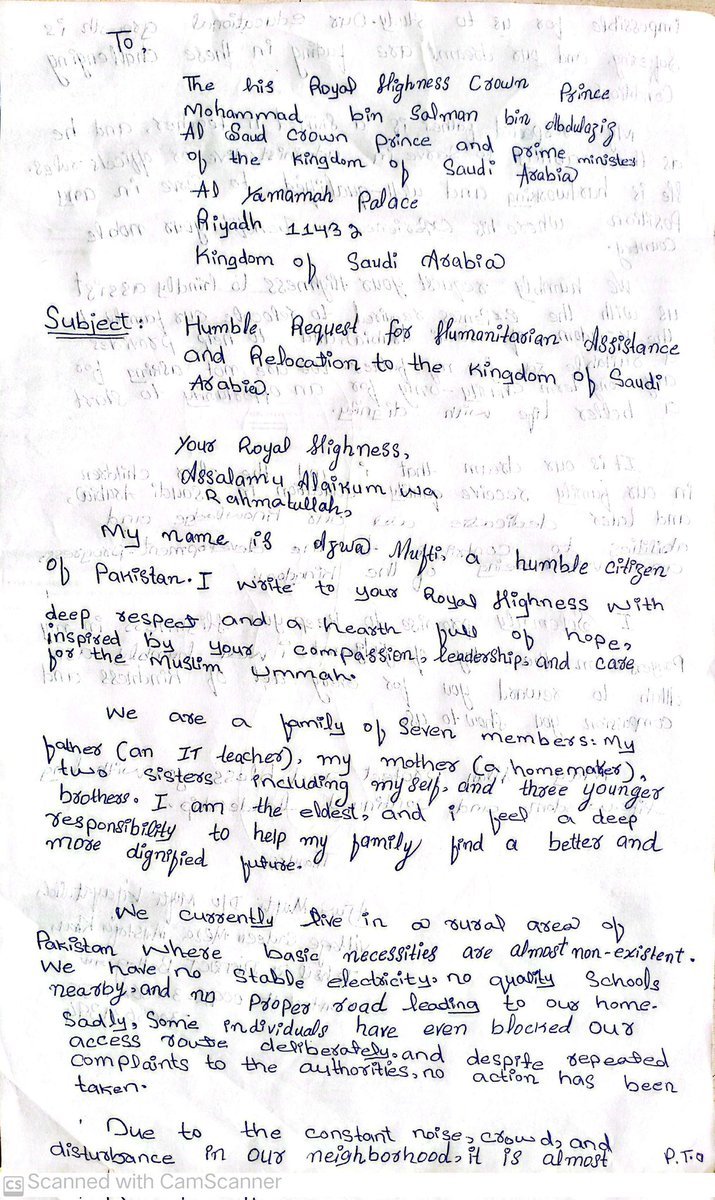 To,
The his Royal Highness Crown Prince
Mohammad bin Salman bin Abdulaziz
Al Saud Crown Prince and prime minister
of the kingdom of Saudi Arabia
Al Yamamah Palace
Riyadh 11432
Kingdom of Saudi Arabia
Subject: Humble Request for Humanitarian Assistance
and Relocation to the Kingdom of Saudi
Arabia.
Your Royal Highness,
Assalamu Alaikum wa
Rahmatullah,
My name is Azwa Mufti, a humble citizen
of Pakistan. I write to your Royal Highness with
deep respect and a hearth full of hope,
inspired by your compassion, leadership, and care
for the Muslim Ummah.
We are a family of Seven members: My
father (an IT teacher), my mother (a homemaker),
two sisters including myself, and three younger
brothers. I am the eldest, and i feel a deep
responsibility to help my family find a better and
more dignified future.
We currently live in a rural area of
Pakistan where basic necessities are almost non-existent.
We have no stable electricity, no quality Schools
nearby, and no Proper road leading to our home.
Sadly, Some individuals have even blocked our
access route deliberately, and despite repeated
complaints to the authorities, no action has been
taken.
Due to the constant noise, crowd, and
disturbance in our neighborhood, it is almost
P.T.O
CS Scanned with CamScanner